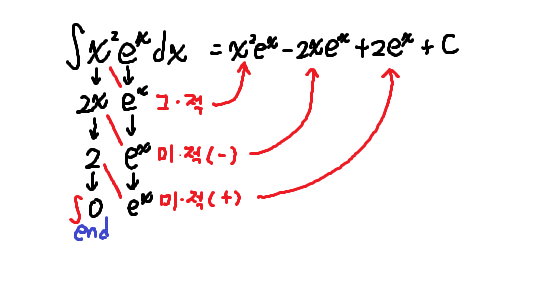 ∫x²eˣdx = x²eˣ - 2xeˣ + 2eˣ + C
2x eˣ 그·적
2 eˣ 미·적(-)
∫0 eˣ 미·적(+)
end